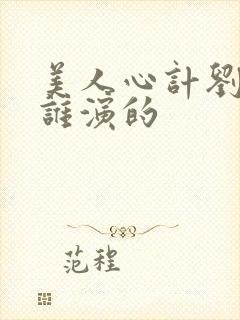 美人心計劉
誰演的
范程